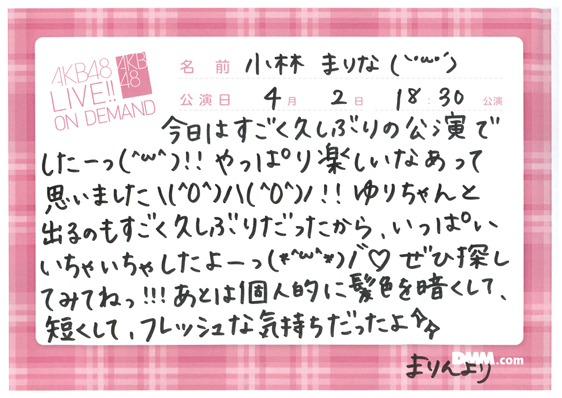 AKB48
LIVE!!
ON DEMAND
AKB
48
名 前 小林 まりな (`･ω･´)
公演日 4月 2日 18:30 公演
今日はすごく久しぶりの公演で
したーっ(^ω^)!! やっぱり楽しいなあって
思いました\(^O^)/\(^O^)/!! ゆりちゃんと
出るのもすごく久しぶりだったから、いっぱい
いちゃいちゃしたよーっ(*^ω^*)/゛♡ ぜひ探し
てみてねっ!!! あとは個人的に髪色を暗くして、
短くして、フレッシュな気持ちだったよ
まりんより
DMM.com